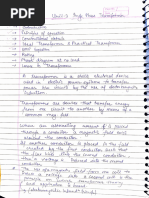 Unit-3 Single Phase Transformer
→ Introduction
→ Principle of operation
→ Constructional details
→ Ideal Transformer & Practical Transformer
→ EMF Equation
→ Rating
→ Phasor diagram at no load
→ Losses in Transformer
A transformer is a static electrical device
used in electric power systems to transfer
electric power between circuits through
the use of electromagnetic induction.
Transformers are devices that transfer energy
from one circuit to another by means
of a common magnetic field.
When an alternating current flows
through a conductor, a magnetic field will exist
around the conductor.
If another conductor is placed in the field
created by the first conductor such that
the flux links the second conductor, then
a voltage is induced into the second
conductor.
The use of a magnetic field from one coil to
induce a voltage into a second coil is the
principle on which transformer theory and
application is based.